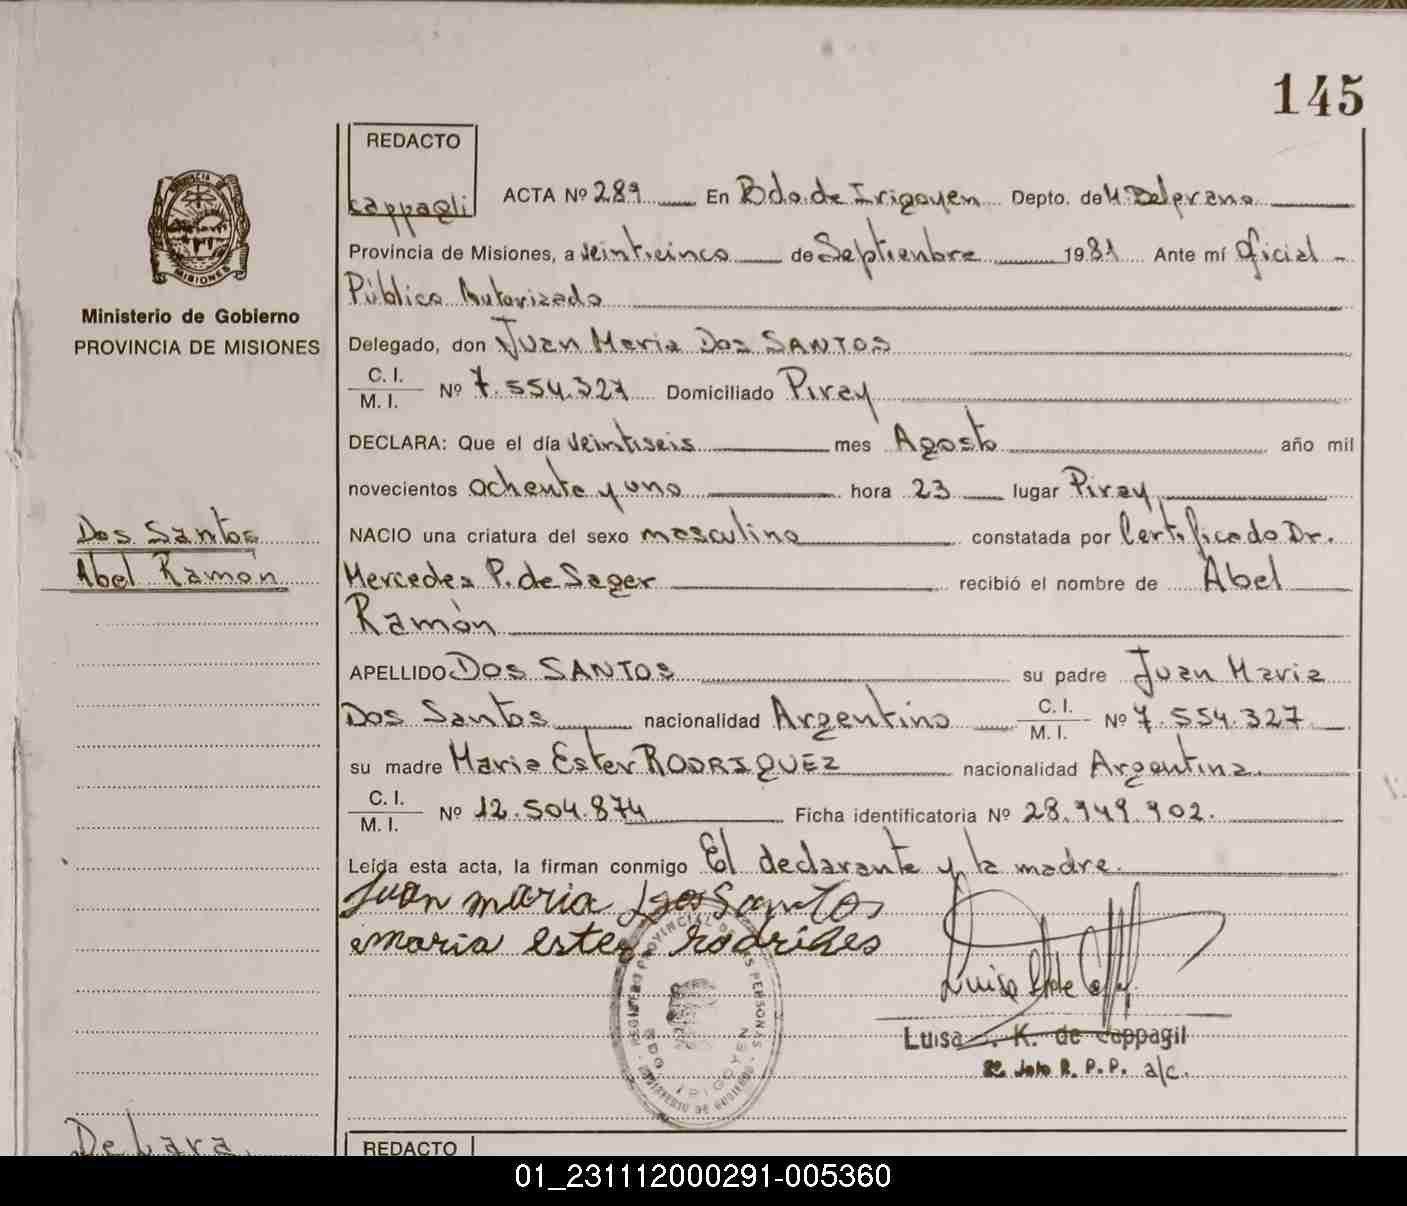 145
REDACTO
cappagli
ACTA Nº 289 En Bdo. de Irigoyen Depto. de M. Belgrano
Provincia de Misiones, a veinticinco de Septiembre 1981 Ante mí Oficial
Público Autorizado
Delegado, don Juan Maria Dos SANTOS
C. I.
M. I. Nº 7.554.327 Domiciliado Piray
DECLARA: Que el día veintiseis mes Agosto año mil
novecientos ochenta y uno hora 23 lugar Piray
NACIO una criatura del sexo masculino constatada por Certificado Dr.
Mercedes P. de Sager recibió el nombre de Abel
Ramón
APELLIDO DOS SANTOS su padre Juan Maria
Dos Santos nacionalidad Argentino C. I.
M. I. Nº 7.554.327
su madre Maria Ester RODRIQUEZ nacionalidad Argentina.
C. I.
M. I. Nº 12.504.874 Ficha identificatoria Nº 28.949.902.
Leída esta acta, la firman conmigo El declarante y la madre.
Juan maria Dos Santos
maria ester rodrihes
Luisa K. de Cappagli
2º Jefe R. P. P. a/c.
REGISTRO PROVINCIAL DE LAS PERSONAS
BDO. IRIGOYEN
MINISTERIO DE GOBIERNO
PROVINCIA DE
MISIONES
Ministerio de Gobierno
PROVINCIA DE MISIONES
Dos Santos
Abel Ramón
De Lara
REDACTO
01_231112000291-005360